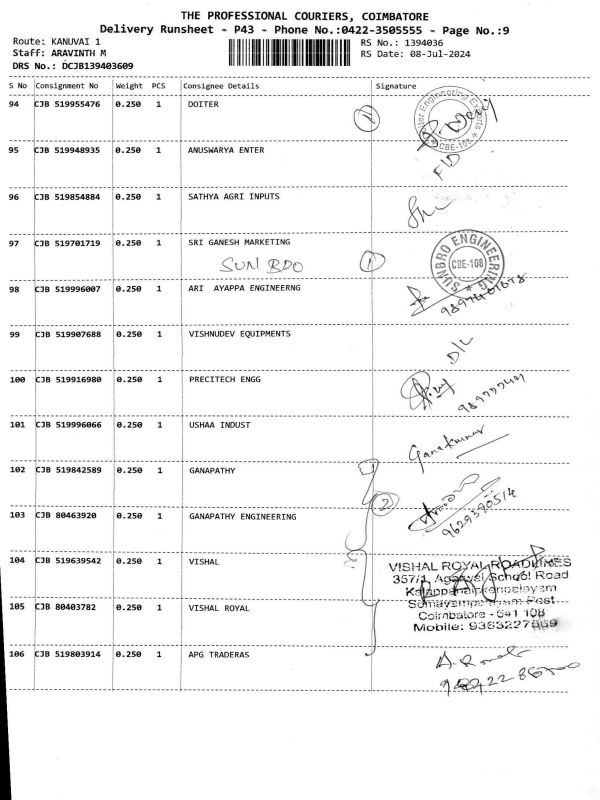 THE PROFESSIONAL COURIERS, COIMBATORE
Delivery Runsheet - P43 - Phone No.:0422-3505555 - Page No.:9
Route: KANUVAI 1 RS No.: 1394036
Staff: ARAVINTH M RS Date: 08-Jul-2024
DRS No.: DCJB139403609
S No Consignment No Weight PCS Consignee Details Signature
94 CJB 519955476 0.250 1 DOITER
1
CBE-108
95 CJB 519948935 0.250 1 ANUSWARYA ENTER
F/D
96 CJB 519854884 0.250 1 SATHYA AGRI INPUTS
97 CJB 519701719 0.250 1 SRI GANESH MARKETING
SUN BDO 1
SUNBRO ENGINEERING
CBE-108
98 CJB 519996007 0.250 1 ARI AYAPPA ENGINEERNG
99 CJB 519907688 0.250 1 VISHNUDEV EQUIPMENTS
D/L
100 CJB 519916980 0.250 1 PRECITECH ENGG
101 CJB 519996066 0.250 1 USHAA INDUST
Ganakumar
102 CJB 519842589 0.250 1 GANAPATHY
2
9629390514
103 CJB 80463920 0.250 1 GANAPATHY ENGINEERING
104 CJB 519639542 0.250 1 VISHAL
VISHAL ROYAL ROADLINES
357/1, Agarwal School Road
105 CJB 80403782 0.250 1 VISHAL ROYAL
Coimbatore - 641 108
Mobile: 9363227669
106 CJB 519803914 0.250 1 APG TRADERAS